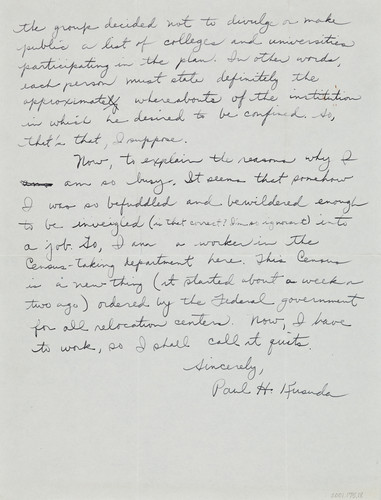 the group decided not to divulge or make
public a list of colleges and universities
participating in the plan. In other words,
each person must state definitely the
approximate whereabouts of the institution
in which he desired to be confined. So,
that's that, I suppose.
Now, to explain the reasons why I
am so busy. It seems that somehow
I was so befuddled and bewildered enough
to be inveigled (is that correct? I'm so ignorant) into
a job. So, I am a worker in the
Census-taking department here. This Census
is a new thing (it started about a week or
two ago) ordered by the Federal government
for all relocation centers. Now, I have
to work, so I shall call it quits.
Sincerely,
Paul H. Kusuda